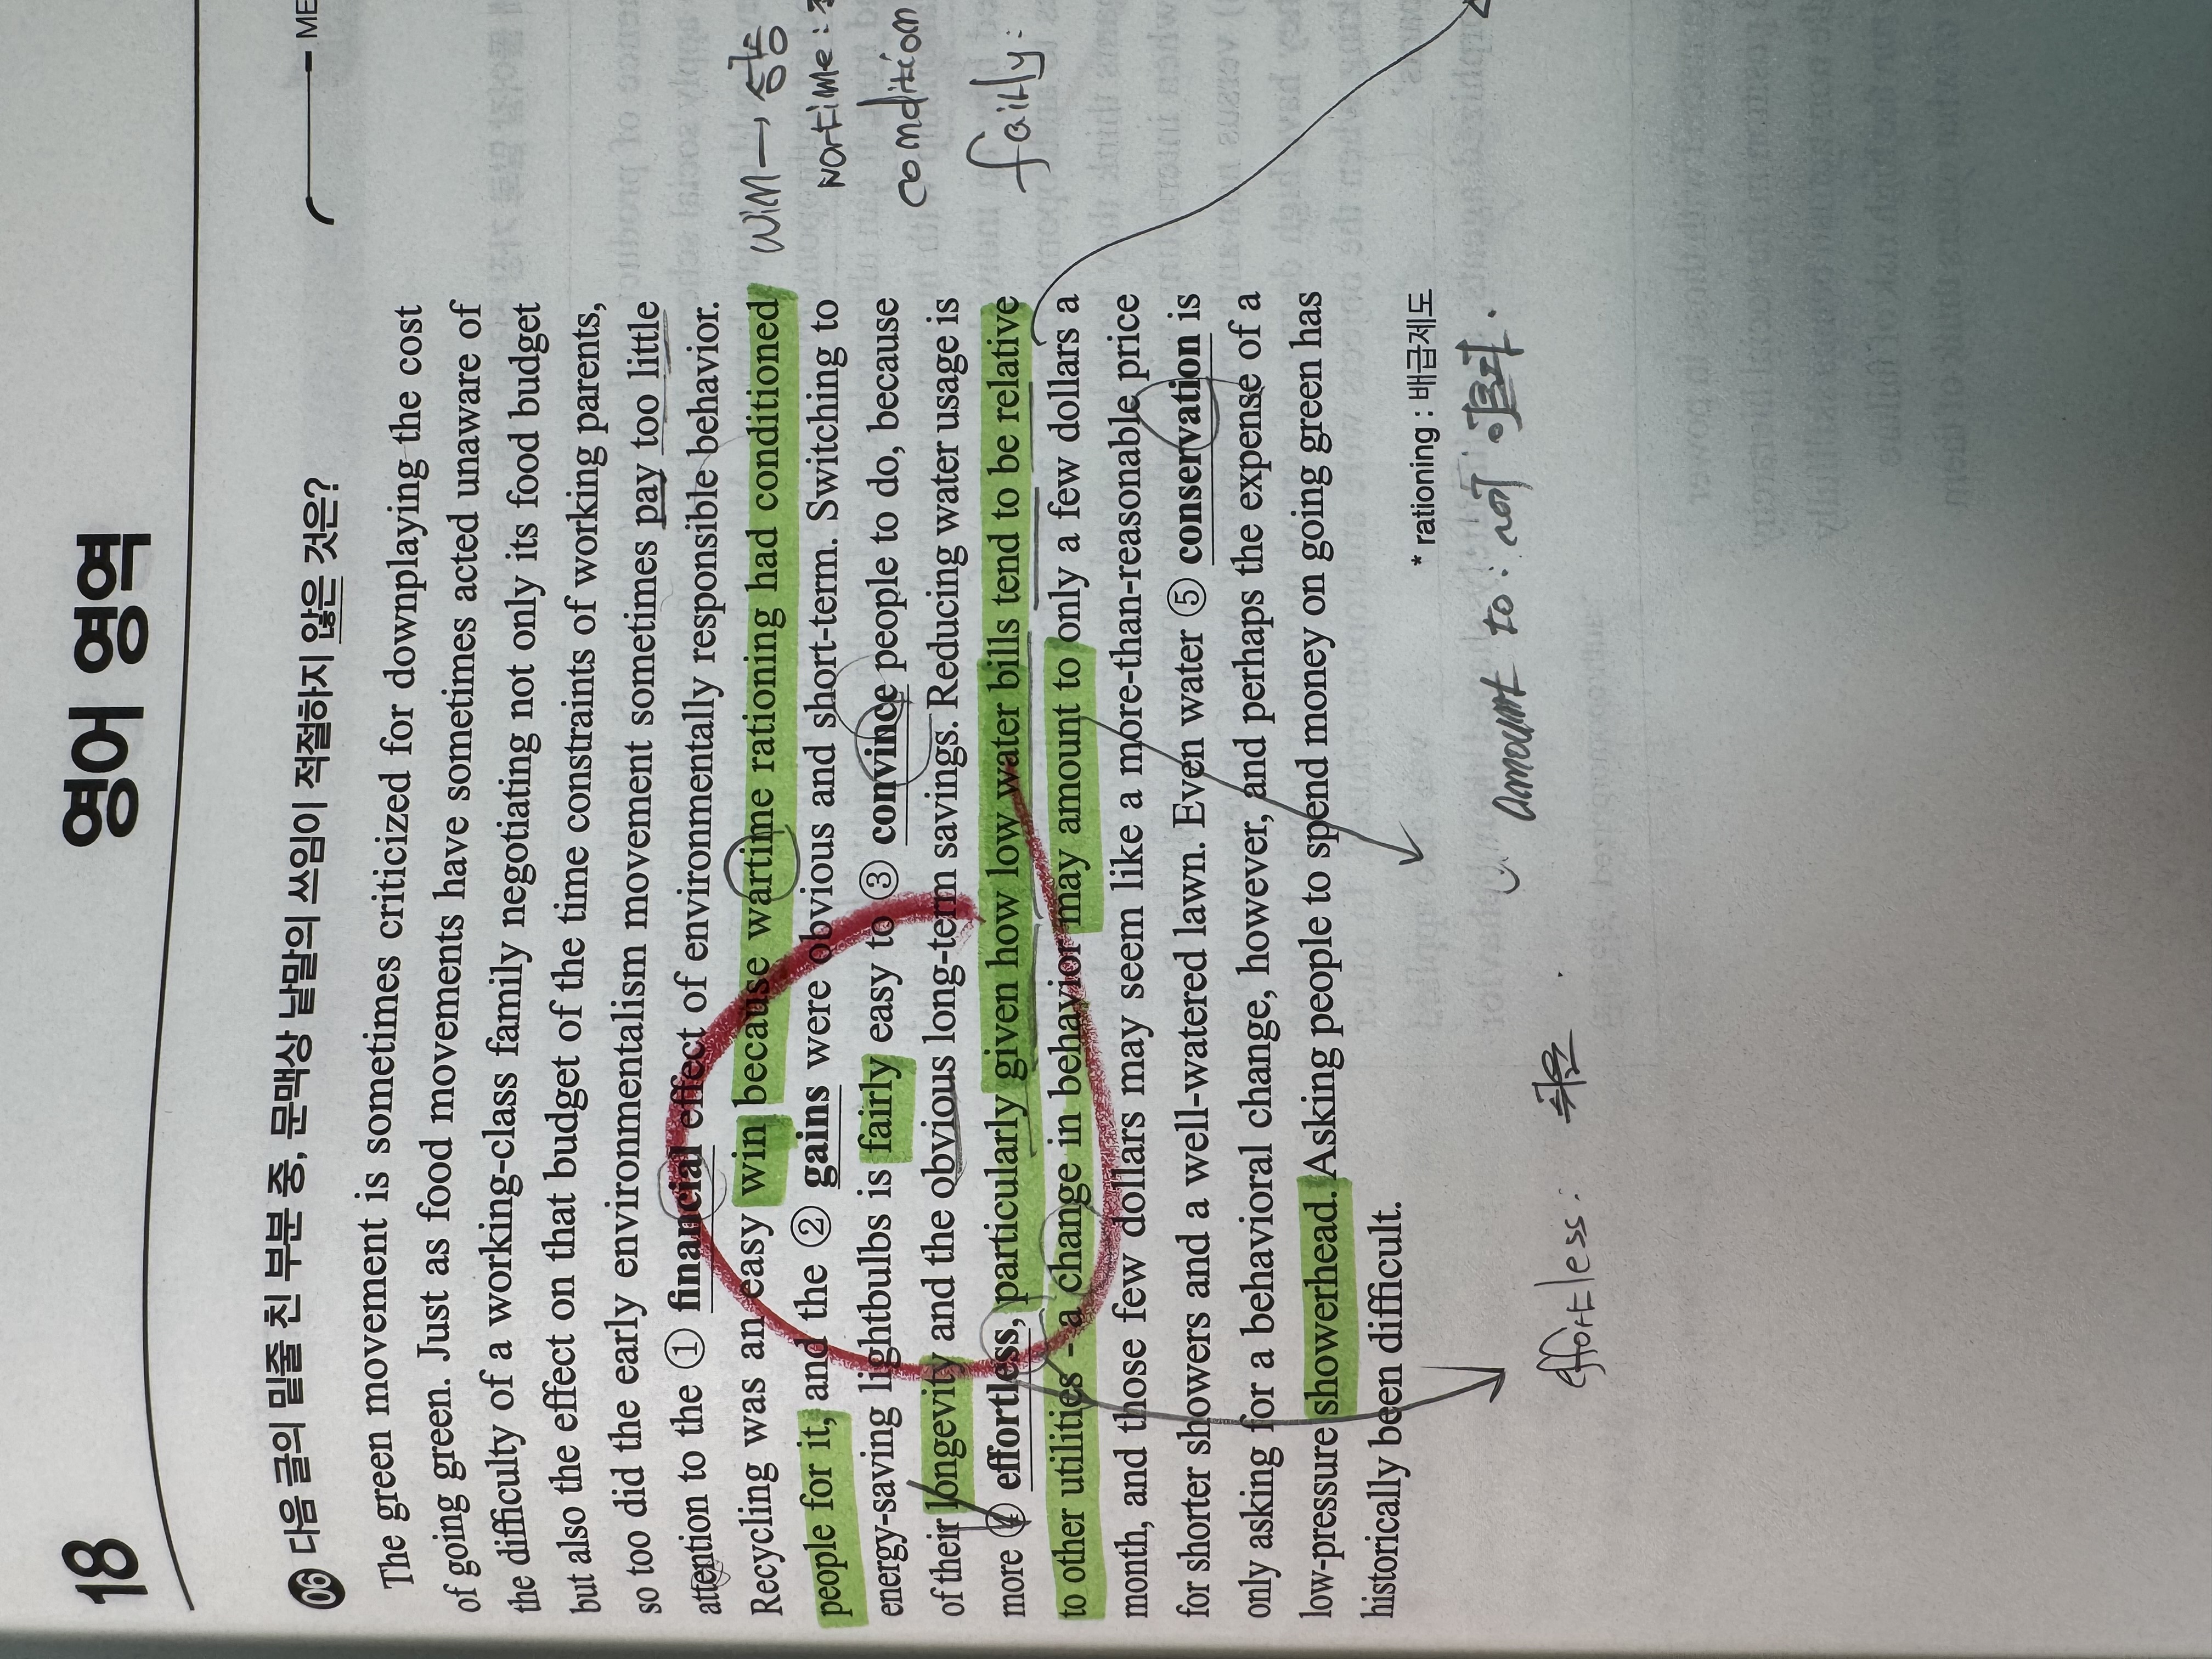 18
영어 영역
06 다음 글의 밑줄 친 부분 중, 문맥상 낱말의 쓰임이 적절하지 않은 것은?
The green movement is sometimes criticized for downplaying the cost
of going green. Just as food movements have sometimes acted unaware of
the difficulty of a working-class family negotiating not only its food budget
but also the effect on that budget of the time constraints of working parents,
so too did the early environmentalism movement sometimes pay too little
attention to the ① financial effect of environmentally responsible behavior.
Recycling was an easy win because wartime rationing had conditioned
people for it, and the ② gains were obvious and short-term. Switching to
energy-saving lightbulbs is fairly easy to ③ convince people to do, because
of their longevity and the obvious long-term savings. Reducing water usage is
more ④ effortless, particularly given how low water bills tend to be relative
to other utilities - a change in behavior may amount to only a few dollars a
month, and those few dollars may seem like a more-than-reasonable price
for shorter showers and a well-watered lawn. Even water ⑤ conservation is
only asking for a behavioral change, however, and perhaps the expense of a
low-pressure showerhead. Asking people to spend money on going green has
historically been difficult.
* rationing : 배급제도
win → 상승
wartime :
condition
faily :
amount to : 에 이르다.
effortless : 쉬운
ME